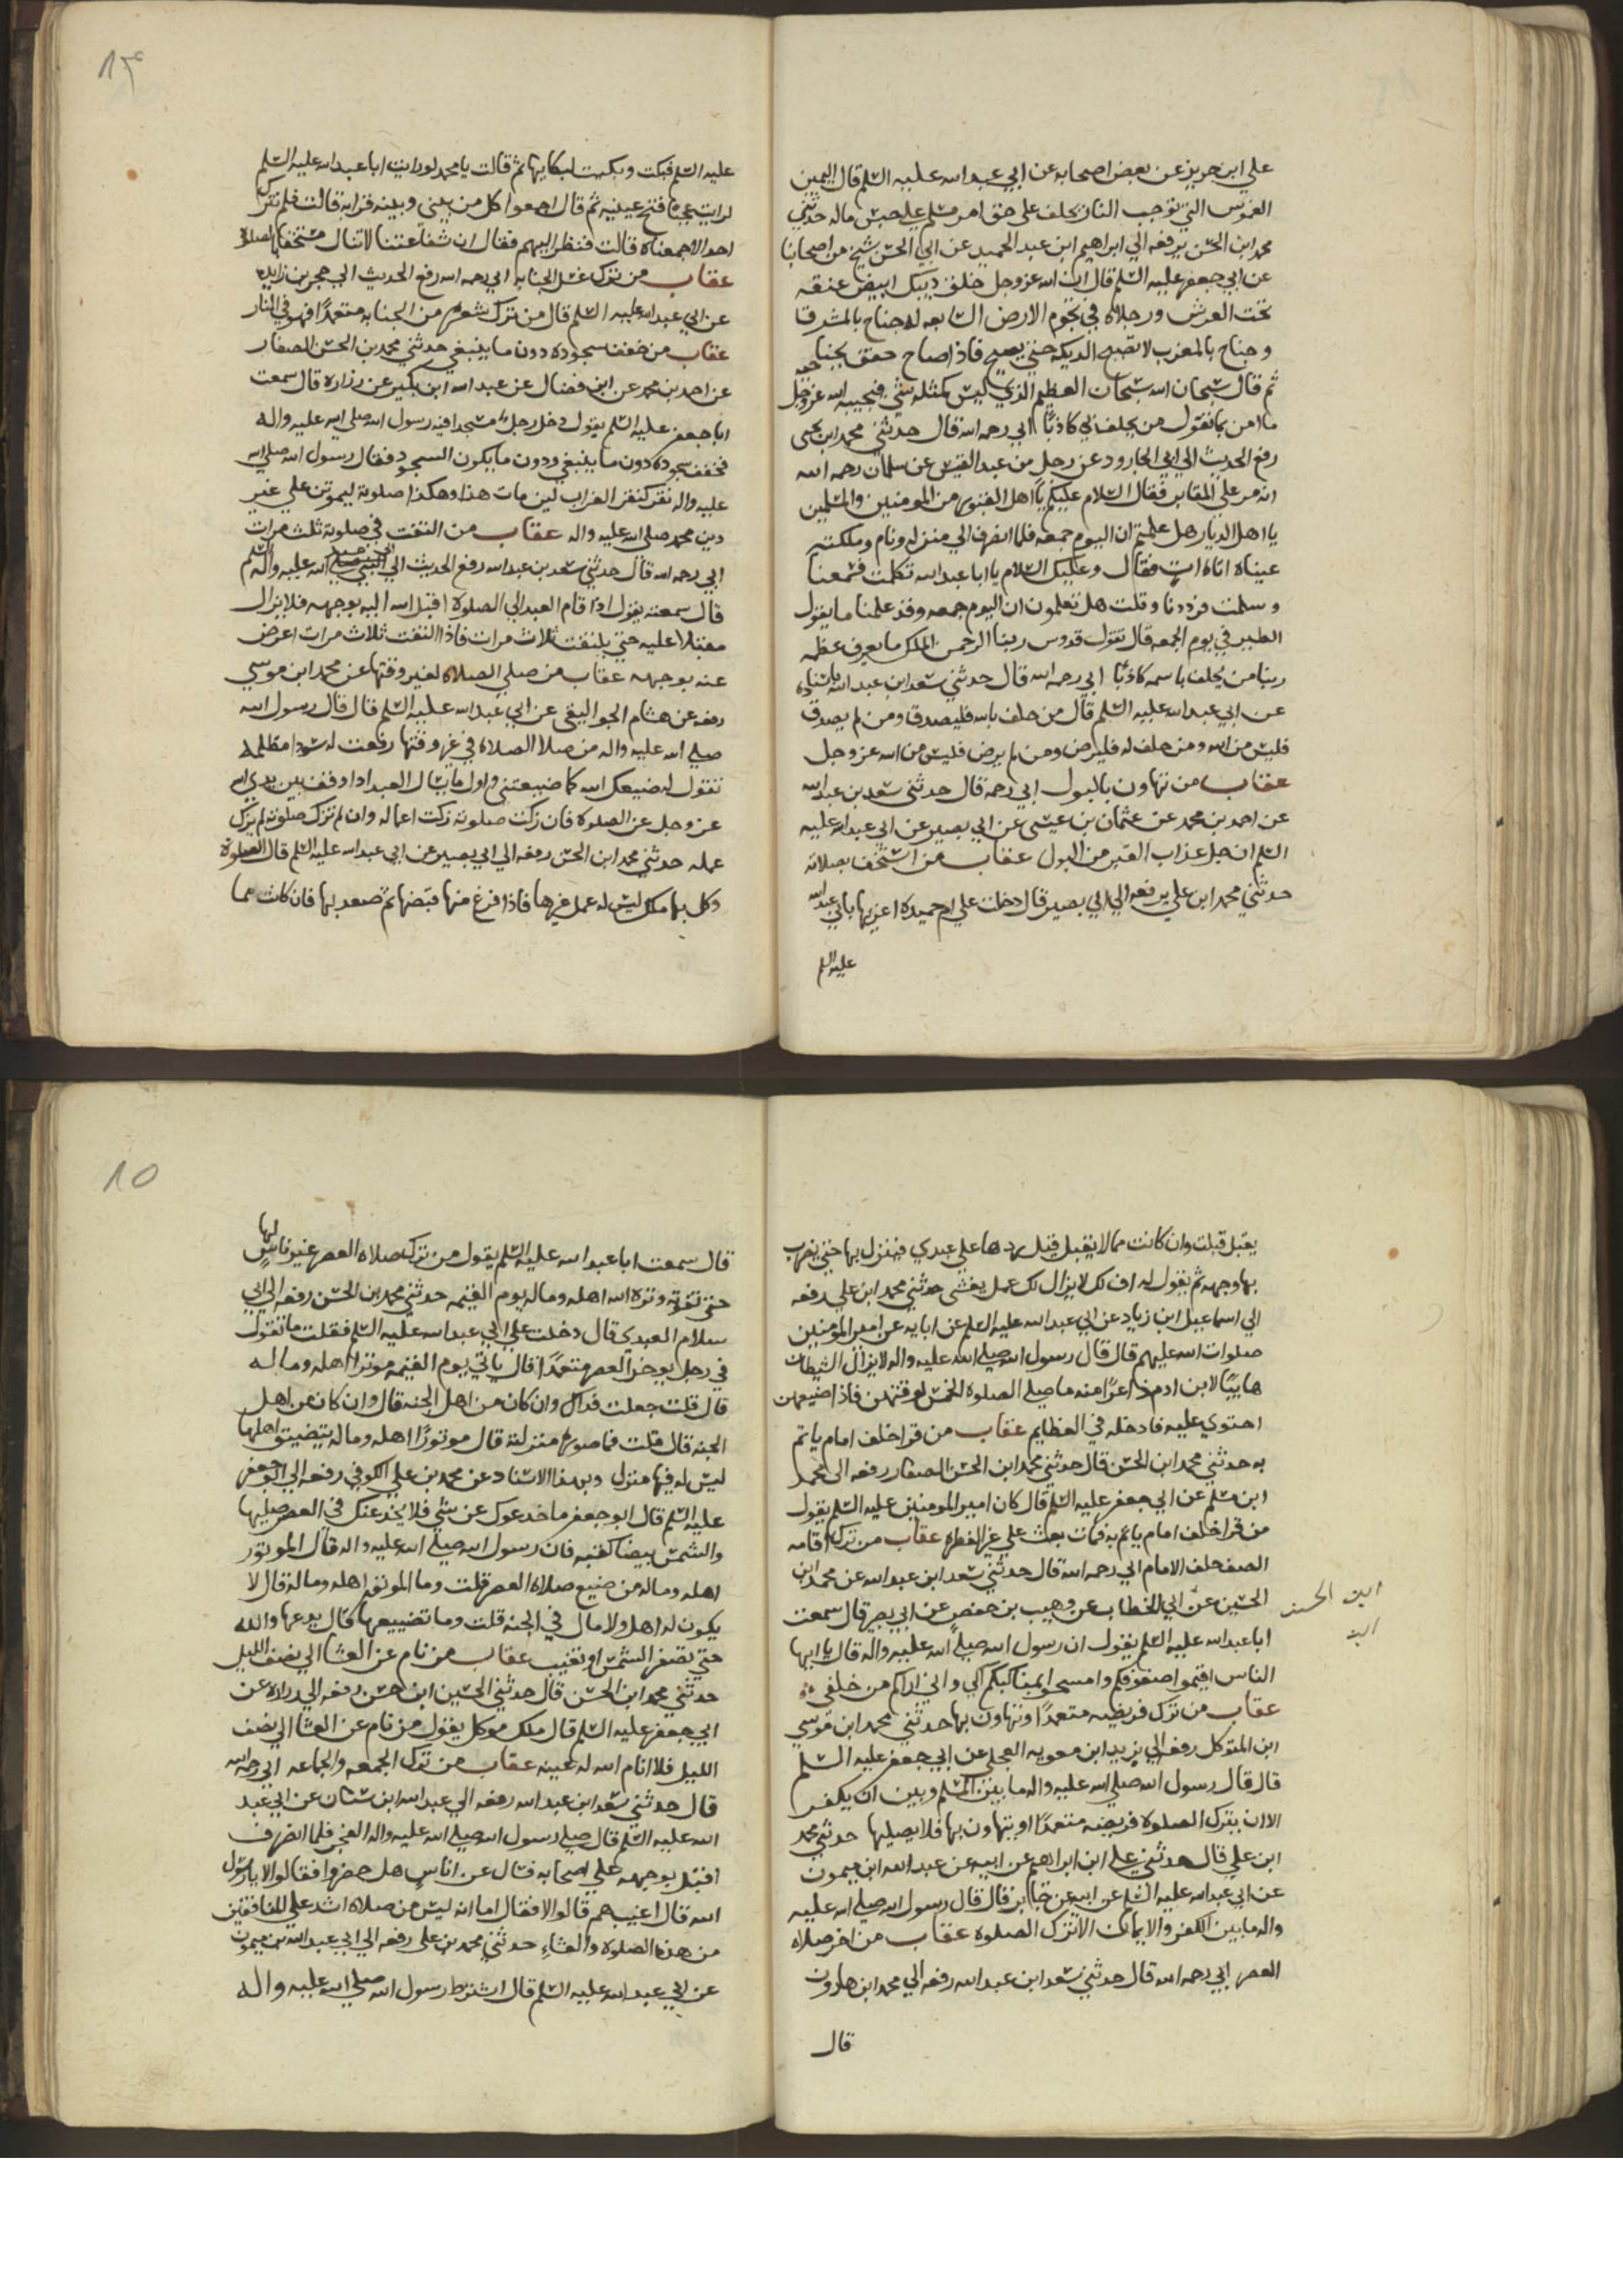 علي ابن حريز عن بعض اصحابه عن ابي عبد الله عليه السلم قال اليمين
الغموس التي توجب النار يحلف على حق امر مسلم علي حبس ماله حدثني
محمد ابن الحسن يرفعه الي ابراهيم ابن عبد الحميد عن ابي الحسن شيخ من اصحابنا
عن ابي جعفر عليه السلم قال ان الله عز وجل خلق ديك ابيض عنقه
تحت العرش ورجلاه في تخوم الارض السابعه له جناح بالمشرق
وجناح بالمغرب لا تصيح الديكه حتي يصيح فاذا صاح خفق بجناحه
ثم قال سبحان الله سبحان العظيم الذي ليس كمثله شي فيجيبه الله عز وجل
ما امن بما تقول من يحلف بي كاذبًا ابي رحمه الله قال حدثني محمد ابن يحيى
رفع الحديث الي ابي الجارود عن رجل من عبد القيس عن سلمان رحمه الله
انه مر علي المقابر فقال السلام عليكم يا اهل القبور من المومنين والمسلمين
يا اهل الديار هل علمتم ان اليوم جمعه فلما انصرف الي منزله ونام وملكته
عيناه اتاه ات فقال وعليك السلام يا ابا عبد الله تكلمت فسمعنا
وسلمت فرددنا وقلت هل تعلمون ان اليوم جمعه وقد علمنا ما يقول
الطير في يوم الجمعه قال تقول قدوس ربنا الرحمن الملك ما يعرف عظمه
ربنا من يحلف باسمه كاذبًا ابي رحمه الله قال حدثني سعد ابن عبد الله باسناده
عن ابي عبد الله عليه السلم قال من حلف بالله فليصدق ومن لم يصدق
فليس من الله ومن حلف له فليرض ومن لم يرض فليس من الله عز وجل
عقاب من تهاون بالبول ابي رحمه قال حدثني سعد بن عبد الله
عن احمد بن محمد عن عثمان بن عيسى عن ابي بصير عن ابي عبد الله عليه
السلم ان جل عذاب القبر من البول عقاب من استخف بصلاته
حدثني محمد ابن علي يرفعه الي ابي بصير قال دخلت علي ام حميده اعزيها بابي عبد الله
عليه السلم
١٤
عليه السلم فبكت وبكيت لبكايها ثم قالت يا محمد لو رايت ابا عبد الله عليه السلم
لرايت عجبا فتح عينيه ثم قال اجمعوا كل من بيني وبينه قرابه قالت فلم نترك
احد الا جمعناه قالت فنظر اليهم فقال ان شفاعتنا لا تنال مستخفا بالصلاة
عقاب من ترك غسل الجنابه ابي رحمه الله رفع الحديث الي حجر بن زايده
عن ابي عبد الله عليه السلم قال من ترك شعره من الجنابه متعمدًا فهو في النار
عقاب من خفف سجوده دون ما ينبغي حدثني محمد بن الحسن الصفار
عن احمد بن محمد عن ابن فضال عن عبد الله ابن بكير عن زراره قال سمعت
ابا جعفر عليه السلم يقول دخل رجل مسجدا فيه رسول الله صلي الله عليه واله
فخفف سجوده دون ما ينبغي ودون ما يكون السجود فقال رسول الله صلي الله
عليه واله نقر كنقر الغراب لين مات هذا وهكذا صلوته ليموتن علي غير
دين محمد صلي الله عليه واله عقاب من التفت في صلوته ثلث مرات
ابي رحمه الله قال حدثني سعد بن عبد الله رفع الحديث الي النبي صلي الله عليه واله وسلم
قال سمعته يقول اذا قام العبد الي الصلوة اقبل الله اليه بوجهه فلا يزال
مقبلا عليه حتي يلتفت ثلاث مرات فاذا التفت ثلاث مرات اعرض
عنه بوجهه عقاب من صلي الصلاه لغير وقتها عن محمد ابن موسي
رفعه عن هشام الجواليقي عن ابي عبد الله عليه السلم قال قال رسول الله
صلي الله عليه واله من صلا الصلاه في غير وقتها رفعت له سودا مظلمه
تقول له ضيعك الله كما ضيعتني واول ما يسال العبد اذا وقف بين يدي الله
عز وجل عن الصلوة فان زكت صلوته زكت اعماله وان لم تزك صلوته لم يزك
عمله حدثني محمد ابن الحسن رفعه الي ابي بصير عن ابي عبد الله عليه السلم قال الصلوة
وكل بها ملك ليس له عمل غيرها فاذا فرغ منها قبضها ثم صعد بها فان كانت مما
يقبل قبلت وان كانت مما لا يقبل قيل ردها علي عبدي فينزل بها حتي يضرب
بها وجهه ثم يقول له اف لك لا يزال لك عمل يغشى حدثني محمد ابن علي رفعه
الي اسماعيل ابن زياد عن ابي عبد الله عليه السلم عن ابايه عن امير المومنين
صلوات الله عليهم قال قال رسول الله صلي الله عليه واله لا يزال الشيطان
هايبًا لابن ادم ذعرًا منه ما صلي الصلوة الخمس لوقتهن فاذا ضيعهن
احتوي عليه فادخله في العظايم عقاب من قرا خلف امام ياتم
به حدثني محمد ابن الحسن قال حدثني محمد ابن الحسن الصفار رفعه الى محمد
ابن مسلم عن ابي جعفر عليه السلم قال كان امير المومنين عليه السلم يقول
من قرا خلف امام ياتم به فمات بعث علي غير الفطره عقاب من ترك اقامه
الصف خلف الامام ابي رحمه الله قال حدثني سعد ابن عبد الله عن محمد ابن
الحسين عن ابي الخطاب عن وهيب بن حفص عن ابي بصير قال سمعت
ابن الحسن
ابا عبد الله عليه السلم يقول ان رسول الله صلي الله عليه واله قال يا ايها
الناس اقيمو اصفوفكم وامسحوا بمناكبكم الي واني اراكم من خلفي
عقاب من ترك فريضه متعمدًا وتهاون بها حدثني محمد ابن موسي
ابن المتوكل رفعه الي يزيد ابن معويه العجلي عن ابي جعفر عليه السلم
قال قال رسول الله صلي الله عليه واله ما بين المسلم وبين ان يكفر
الا ان يترك الصلوة فريضه متعمدًا او يتهاون بها فلا يصليها حدثني محمد
ابن علي قال حدثني علي ابن ابراهيم عن ابيه عن عبد الله ابن ميمون
عن ابي عبد الله عليه السلم عن ابيه عن جابر قال قال رسول الله صلي الله عليه
واله ما بين الكفر والايمان الا ترك الصلوة عقاب من اخر صلاه
العصر ابي رحمه الله قال حدثني سعد ابن عبد الله رفعه الي محمد ابن هارون
قال
١٥
قال سمعت ابا عبد الله عليه السلم يقول من ترك صلاة العصر غير ناس لها
حتي تفوته وتره الله اهله وماله يوم القيمه حدثني محمد ابن الحسن رفعه الي ابي
سلام العبدي قال دخلت علي ابي عبد الله عليه السلم فقلت ما تقول
في رجل يوخر العصر متعمدًا قال ياتي يوم القيمه موتورا اهله وماله
قال قلت جعلت فداك وان كان من اهل الجنه قال وان كان من اهل
الجنه قال قلت فما صورة منزلته قال موتورًا اهله وماله يتضيف اهلها
ليس له فيها منزل وبهذا الاسناد عن محمد بن علي الكوفي رفعه الي ابي جعفر
عليه السلم قال ابو جعفر ما خدعوك عن شي فلا يخدعنك في العصر صليها
والشمس بيضا نقيه فان رسول الله صلي الله عليه واله قال الموتور
اهله وماله من ضيع صلاة العصر قلت وما الموتور اهله وماله قال لا
يكون له اهل ولا مال في الجنه قلت وما تضييعها قال يدعها والله
حتي تصفر الشمس او تغيب عقاب من نام عن العشا الي نصف الليل
حدثني محمد ابن الحسن قال حدثني الحسين ابن حسن رفعه الي زراره عن
ابي جعفر عليه السلم قال ملك موكل يقول من نام عن العشا الي نصف
الليل فلا انام الله له عينه عقاب من ترك الجمعه والجماعه ابي رحمه الله
قال حدثني سعد ابن عبد الله رفعه الي عبد الله ابن سنان عن ابي عبد
الله عليه السلم قال صلي رسول الله صلي الله عليه واله الفجر فلما انصرف
اقبل بوجهه علي اصحابه فسال عن اناس هل حضروا فقالوا لا يا رسول
الله قال اغيب هم قالوا لا فقال اما انه ليس من صلاه اشد علي المنافقين
من هذه الصلوة والعشاء حدثني محمد بن علي رفعه الي ابي عبد الله بن ميمون
عن ابي عبد الله عليه السلم قال اشترط رسول الله صلي الله عليه واله